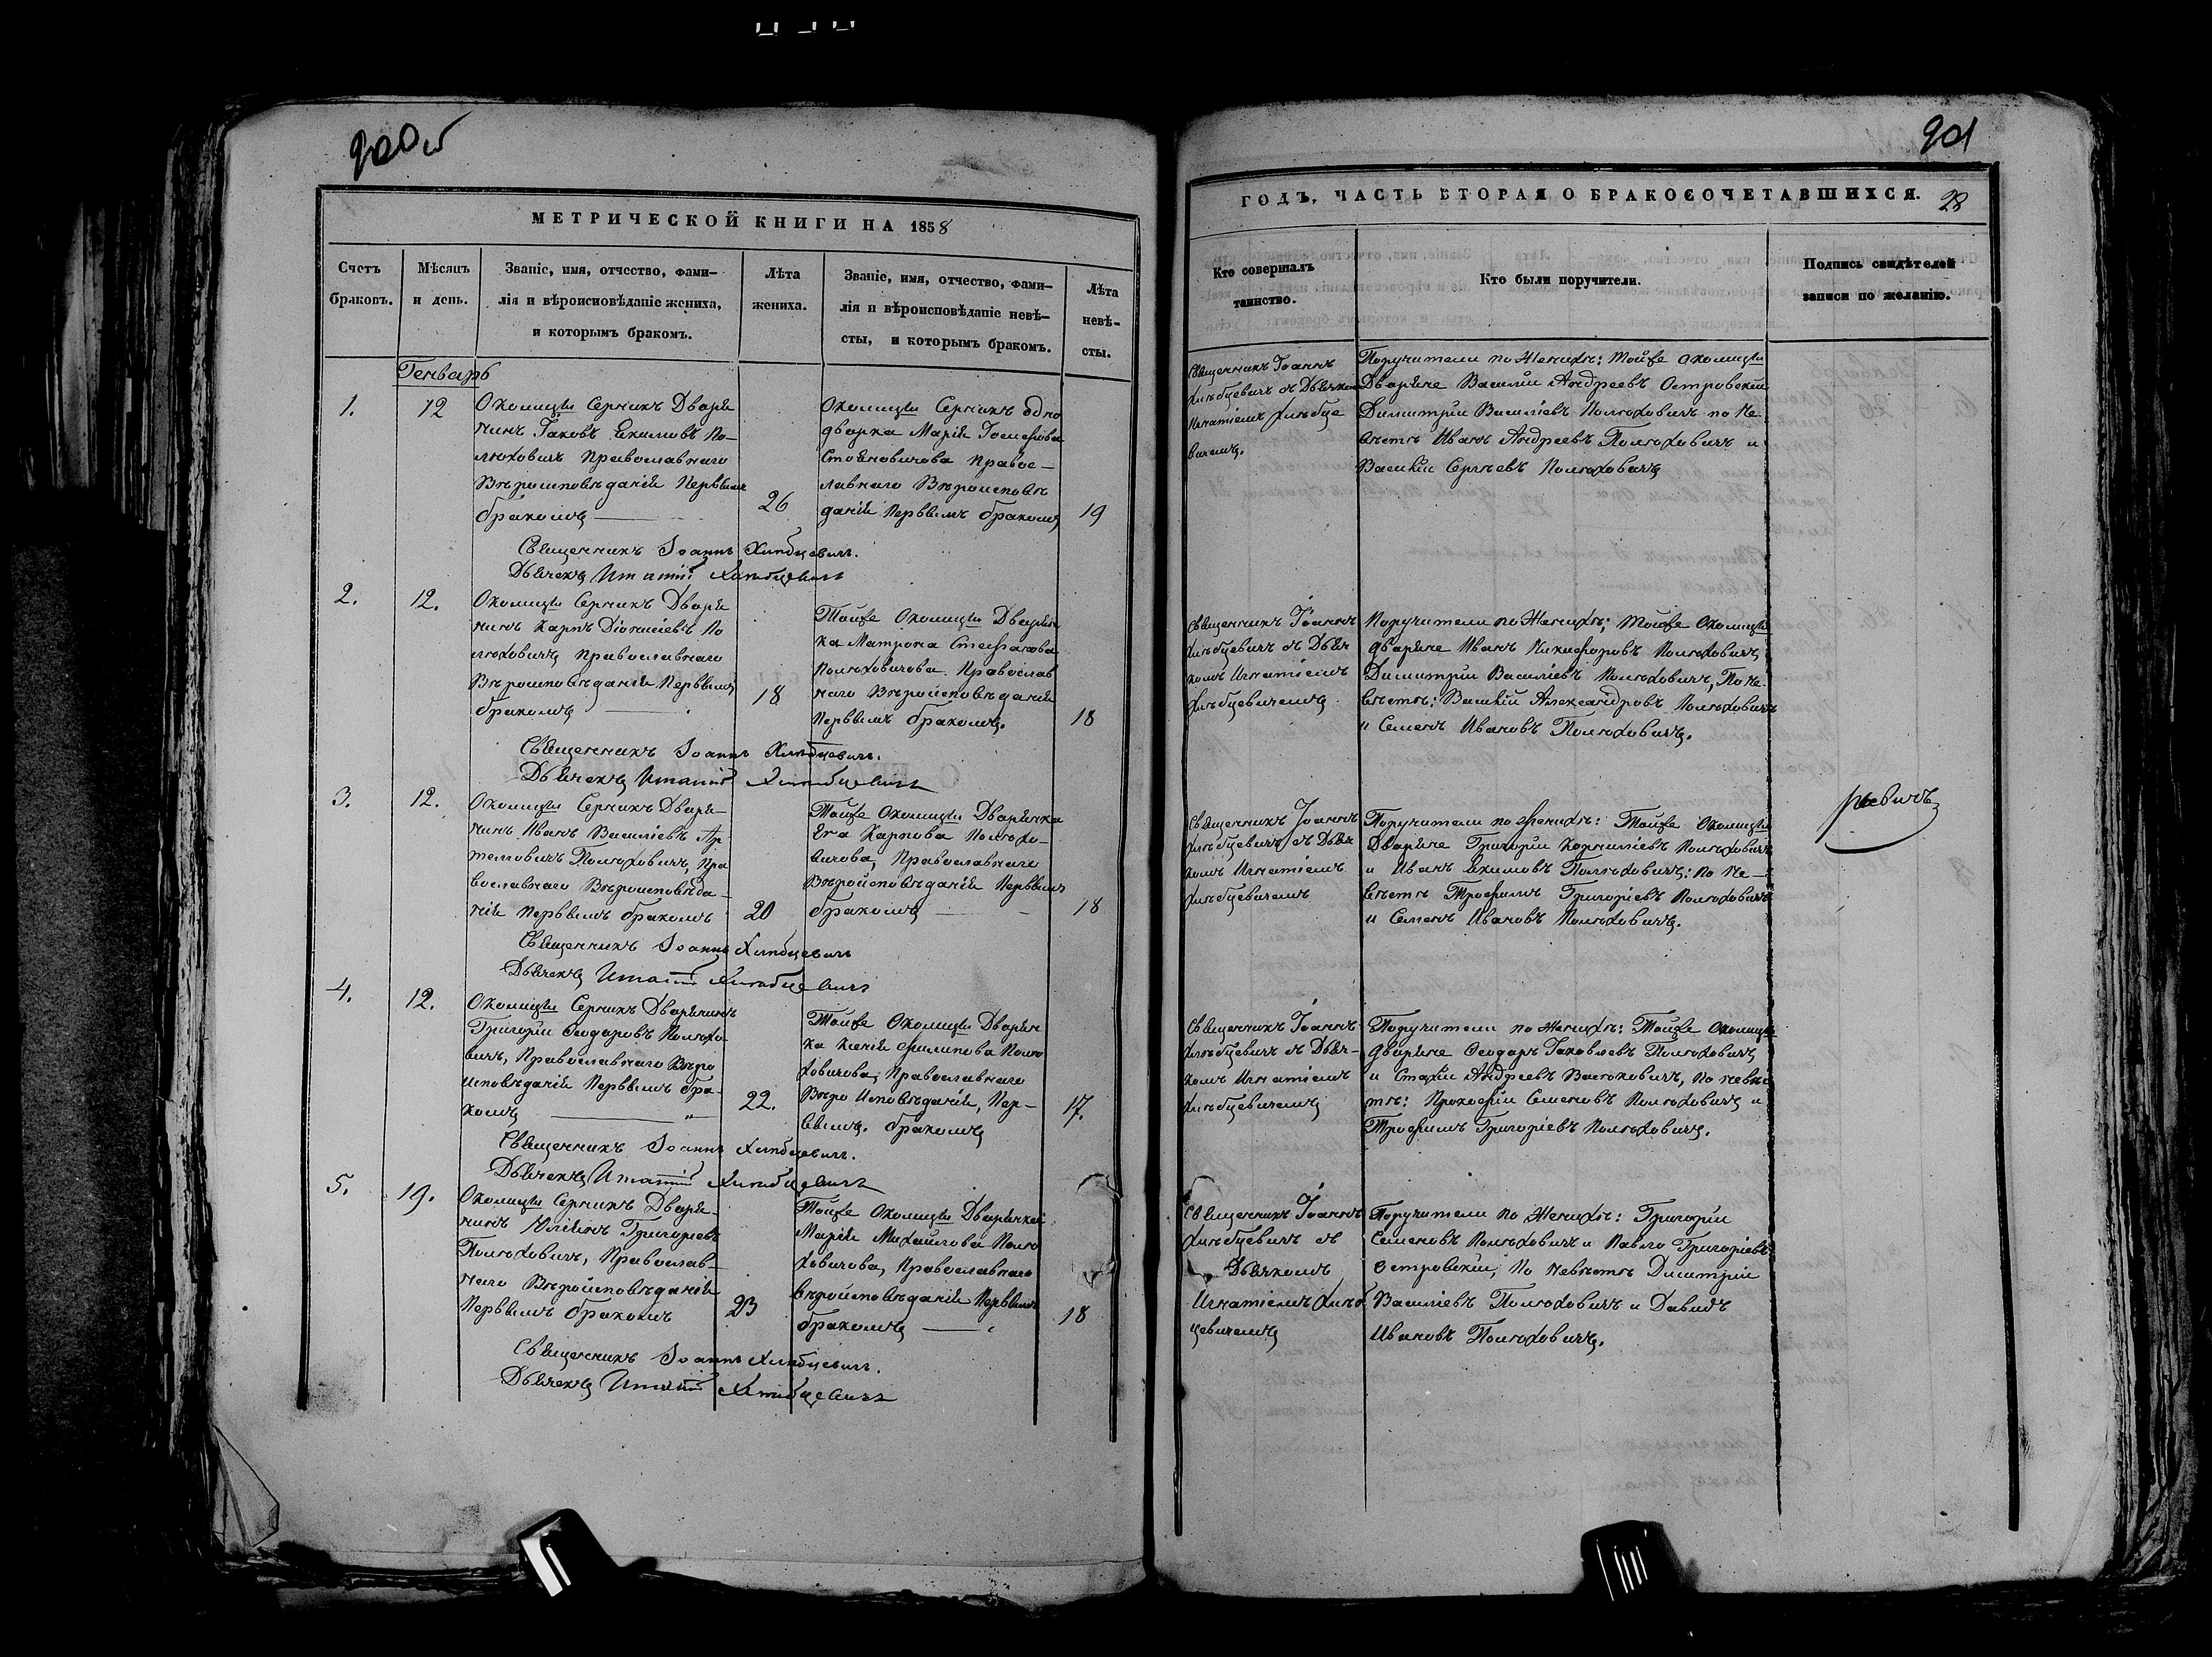 900 об
МЕТРИЧЕСКОЙ КНИГИ НА 1858
Счетъ браковъ.
Мѣсяцъ и день.
Званіе, имя, отчество, фами-
лія и вѣроисповѣданіе жениха,
и которымъ бракомъ.
Лѣта жениха.
Званіе, имя, отчество, фами-
лія и вѣроисповѣданіе невѣ-
сты, и которымъ бракомъ.
Лѣта невѣ-
сты.
Генварь
1.
12
Околицы Серникъ Дворя
нинъ Іаковъ Екимовъ По-
люховичъ Православнаго
Вѣроисповѣданія Первымъ
бракомъ
26
Околицы Серникъ одно
дворка Марія Іосифова
Стояновичова Правос-
лавнаго Вѣроисповѣ
данія Первымъ бракомъ
19
Священникъ Іоаннъ Хлѣбцевичъ.
Дьячекъ Игнатій Хлѣбцевичъ
2.
12.
Околицы Серникъ Дворя
нинъ Карпъ Діонисіевъ По
люховичъ Православнаго
Вѣроисповѣданія Первымъ
бракомъ
18
Тойже Околицы Дворян
ка Матрона Стефанова
Полюховичова Православ
наго Вѣроисповѣданія
Первымъ бракомъ.
18
Священникъ Іоаннъ Хлѣбцевичъ.
Дьячекъ Игнатій Хлѣбцевичъ
3.
12.
Околицы Серникъ Дворя-
нинъ Иванъ Василіевъ Ар
темовичъ Полюховичъ, Пра
вославнаго Вѣроисповѣда-
нія Первымъ бракомъ
20
Тойже Околицы Дворянка
Ева Карпова Полюхо-
вичова, Православнаго
Вѣроисповѣданія Первымъ
бракомъ
18
Священникъ Іоаннъ Хлѣбцевичъ
Дьячекъ Игнатій Хлѣбцевичъ
4.
12.
Околицы Серникъ Дворянинъ
Григорій Ѳеодоровъ Полюхо
вичъ, Православнаго Вѣро
исповѣданія Первымъ бра-
комъ
22.
Тойже Околицы Дворян
ка Ксенія Филипова Полю
ховичова, Православнаго
Вѣро Исповѣданія, Пер-
вымъ бракомъ
17.
Священникъ Іоаннъ Хлѣбцевичъ.
Дьячекъ Игнатій Хлѣбцевичъ
5.
19.
Околицы Серникъ Дворя-
нинъ Юліянъ Григоріевъ
Полюховичъ, Православ-
наго Вѣроисповѣданія
Первымъ бракомъ
23
Тойже Околицы Дворянкой
Марія Михайлова Полю
ховичова, Православнаго
вѣроисповѣданія Первымъ
бракомъ
18
Священникъ Іоаннъ Хлѣбцевичъ.
Дьячекъ Игнатій Хлѣбцевичъ
901
ГОДЪ, ЧАСТЬ ВТОРАЯ О БРАКОСОЧЕТАВШИХСЯ.
28
Кто совершалъ таинство.
Кто были поручители.
Подпись свидѣтелей
записи по желанію.
Священникъ Іоаннъ
Хлѣбцевичъ съ Дьячкомъ
Игнатіемъ Хлѣбце
вичемъ.
Поручители по Женихѣ: Тойже околицы
Дворяне Василій Андреевъ Островскій
Димитрій Василіевъ Полюховичъ по Не-
вѣстѣ Иванъ Андреевъ Полюховичъ и
Василій Сергѣевъ Полюховичъ
Священникъ Іоаннъ
Хлѣбцевичъ съ Дьяч
комъ Игнатіемъ
Хлѣбцевичемъ
Поручители по Женихѣ; Тойже Околицы
дворяне Иванъ Никифоровъ Полюховичъ,
Димитрій Василіевъ Полюховичъ, По Не-
вѣстѣ: Василій Александровъ Полюховичъ
и Семенъ Ивановъ Полюховичъ.
Священникъ Іоаннъ
Хлѣбцевичъ съ Дьяч
комъ Игнатіемъ
Хлѣбцевичемъ
Поручители по женихѣ: Тойже Околицы
Дворяне Григорій Корниліевъ Полюховичъ
и Иванъ Екимовъ Полюховичъ: по Не-
вѣстѣ Трофимъ Григоріевъ Полюховичъ
и Семенъ Ивановъ Полюховичъ.
ревичъ
Священникъ Іоаннъ
Хлѣбцевичъ съ Дьяч-
комъ Игнатіемъ
Хлѣбцевичемъ
Поручители по Женихѣ: Тойже Околицы
дворяне Ѳеодоръ Іаковлевъ Полюховичъ
и Стахій Андреевъ Васюковичъ, по невѣс
тѣ: Прокофій Семеновъ Полюховичъ и
Трофимъ Григоріевъ Полюховичъ.
Священникъ Іоаннъ
Хлѣбцевичъ съ
Дьячкомъ
Игнатіемъ Хлѣб
цевичемъ
Поручители по Женихѣ: Григорій
Семеновъ Полюховичъ и Павло Григоріевъ
Островскій, По Невѣстѣ Димитрій
Василіевъ Полюховичъ и Давидъ
Ивановъ Полюховичъ.